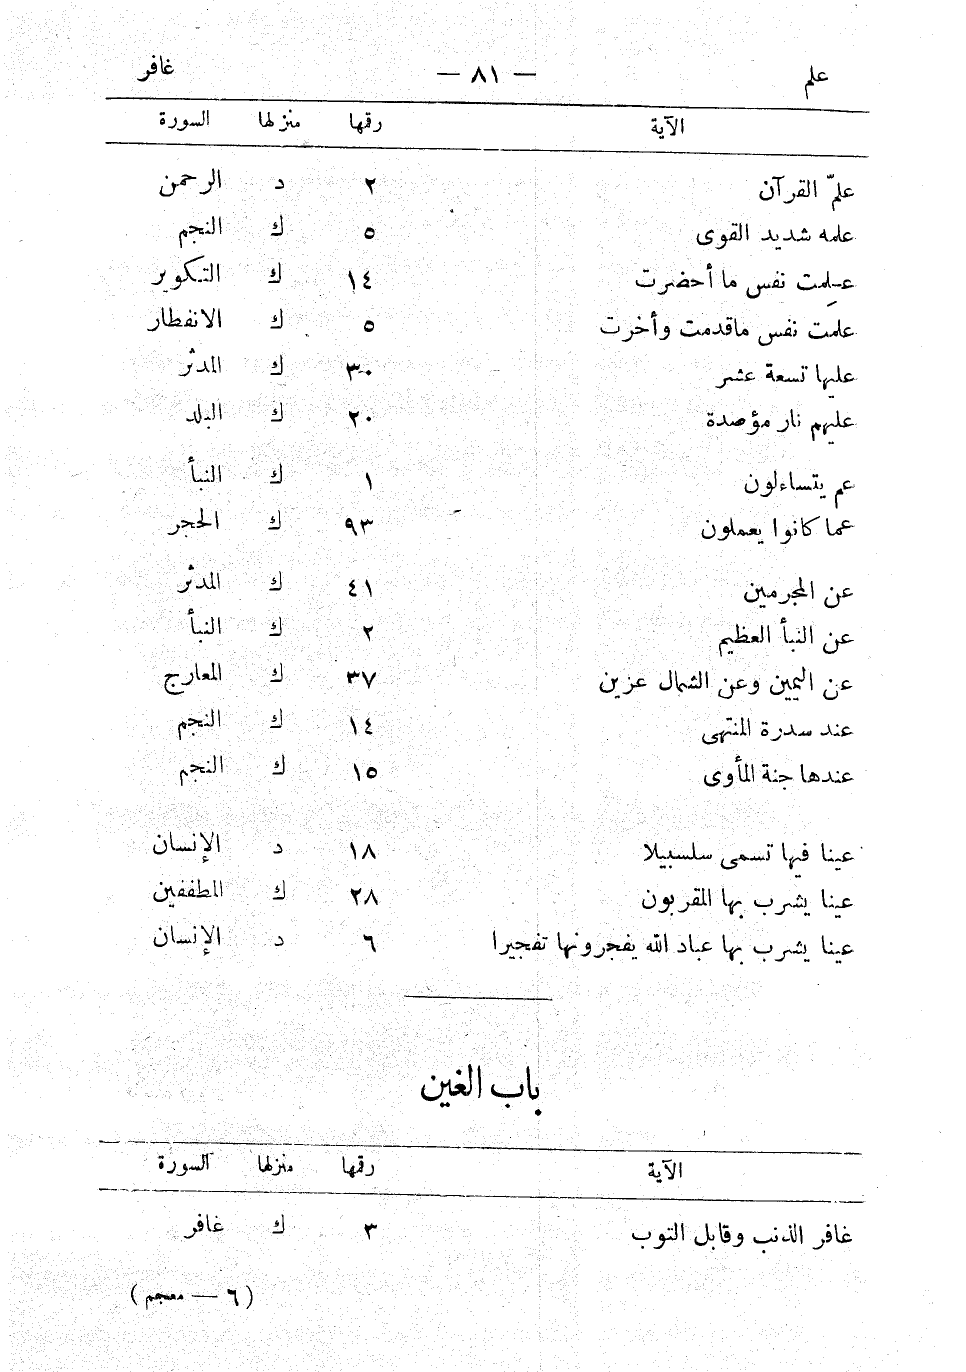 علم — ٨١ — غافر
الآية رقمها منزلها السورة
علّم القرآن ٢ د الرحمن
علمه شديد القوى ٥ ك النجم
عَلِمت نفس ما أحضرت ١٤ ك التكوير
علمت نفس ماقدمت وأخرت ٥ ك الانفطار
عليها تسعة عشر ٣٠ ك المدثر
عليهم نار مؤصدة ٢٠ ك البلد
عم يتساءلون ١ ك النبأ
عما كانوا يعملون ٩٣ ك الحجر
عن المجرمين ٤١ ك المدثر
عن النبأ العظيم ٢ ك النبأ
عن اليمين وعن الشمال عزين ٣٧ ك المعارج
عند سدرة المنتهى ١٤ ك النجم
عندها جنة المأوى ١٥ ك النجم
عينا فيها تسمى سلسبيلا ١٨ د الإنسان
عينا يشرب بها المقربون ٢٨ ك المطففين
عينا يشرب بها عباد الله يفجرونها تفجيرا ٦ د الإنسان
باب الغين
الآية رقمها منزلها السورة
غافر الذنب وقابل التوب ٣ ك غافر
(٦ — معجم)